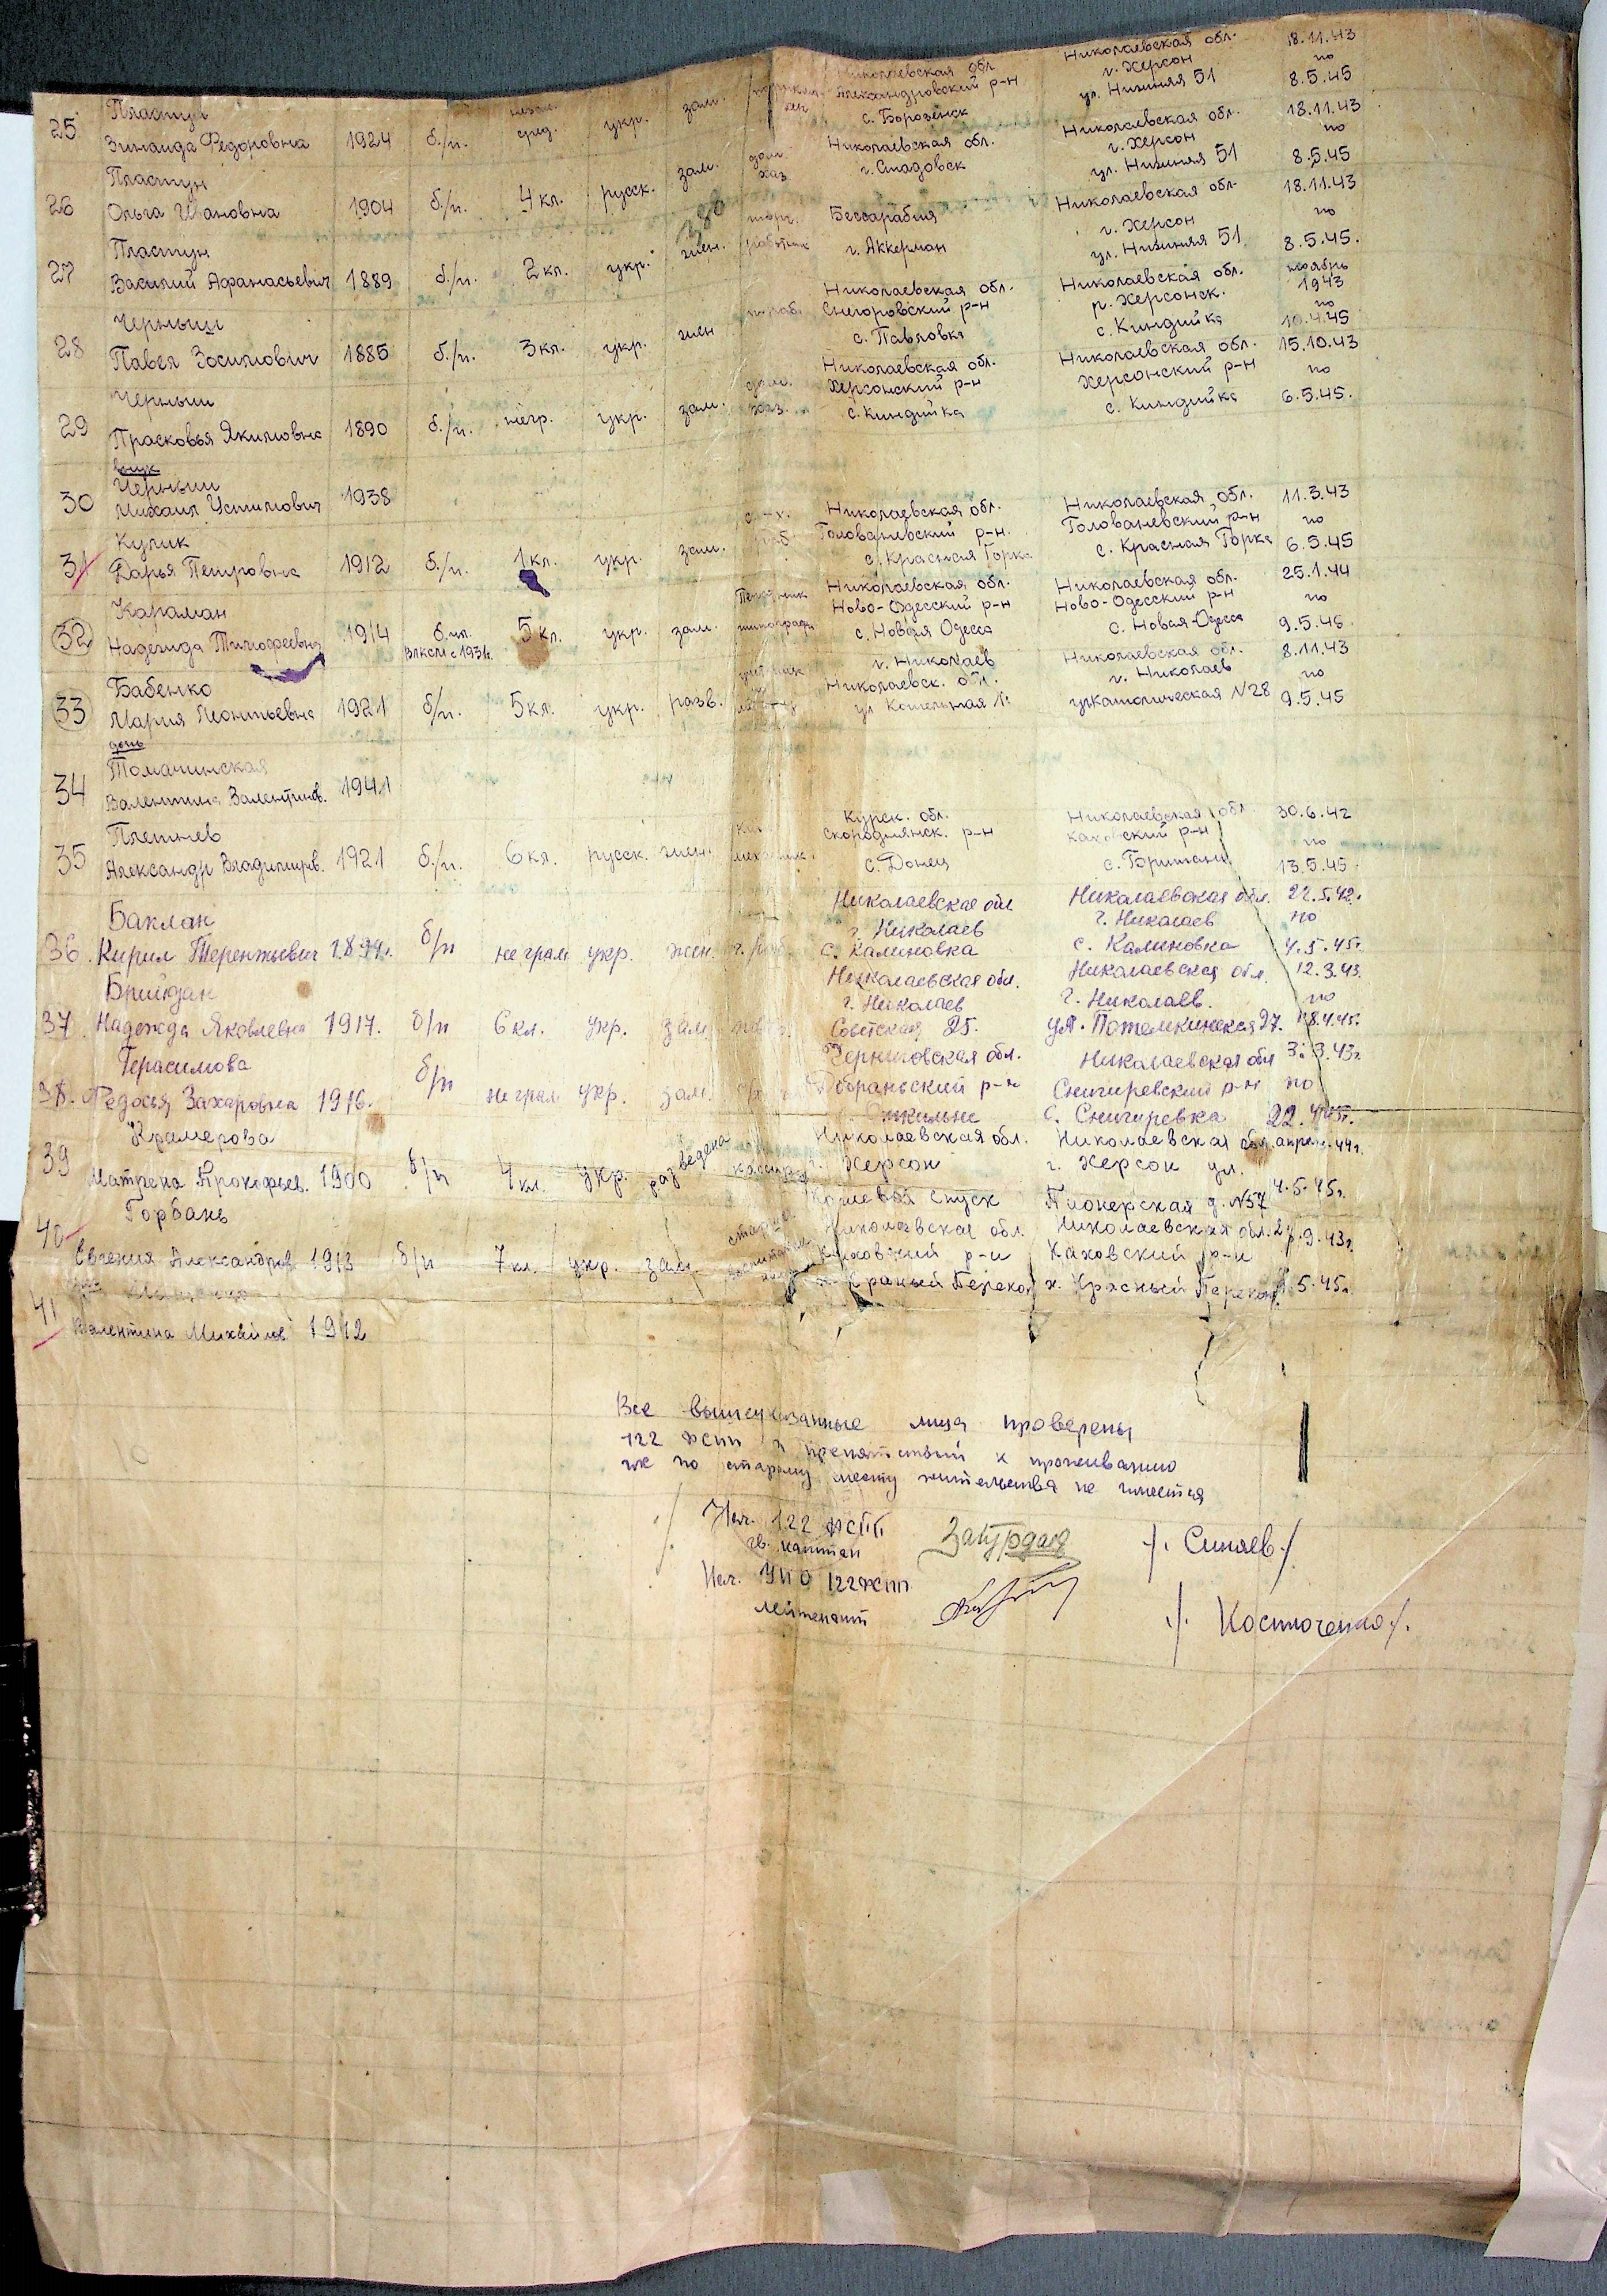 25 Пластун Зинаида Федоровна 1924 б/п. сред. укр. зам. Николаевская обл. Александровский р-н с. Борозенск Николаевская обл. г. Херсон ул. Нижняя 51 18.11.43 по 8.5.45
26 Пластун Ольга Ивановна 1904 б/п. 4 кл. русск. зам. дом. хаз. Николаевская обл. г. Скадовск Николаевская обл. г. Херсон ул. Нижняя 51 18.11.43 по 8.5.45
27 Пластун Василий Афанасьевич 1889 б/п. 2 кл. укр. жен. торг. работник Бессарабия г. Аккерман Николаевская обл. г. Херсон ул. Нижняя 51 18.11.43 по 8.5.45.
28 Черныш Павел Зосимович 1885 б/п. 3 кл. укр. жен Николаевская обл. Снегоровский р-н с. Павловка Николаевская обл. р. Херсонск. с. Киндийка ноябрь 1943 по 10.4.45
29 Черныш Прасковья Якимовна 1890 б/п. негр. укр. зам. дом. хаз. Николаевская обл. Херсонский р-н с. Киндийка Николаевская обл. Херсонский р-н с. Киндийка 15.10.43 по 6.5.45.
30 внук Черныш Михаил Устимович 1938
31 Кулик Дарья Петровна 1912 б/п. 1 кл. укр. зам. с-х. раб. Николаевская обл. Голованевский р-н. с. Красная Горка Николаевская обл. Голованевский р-н с. Красная Горка 11.3.43 по 6.5.45
32 Караман Надежда Тимофеевна 1914 б.п. ВЛКСМ с 1931г. 5 кл. укр. зам. Николаевская обл. Ново-Одесский р-н с. Новая Одесса Николаевская обл. Ново-Одесский р-н с. Новая-Одесса 25.1.44 по 9.5.45.
33 Бабенко Мария Леонтьевна 1921 б/п. 5 кл. укр. разв. г. Николаев Николаевск. обл. ул Котельная Николаевская обл. г. Николаев ул Католическая N 28 8.11.43 по 9.5.45
34 дочь Томачинская Валентина Валентинов. 1941
35 Плетнев Александр Владимиров. 1921 б/п. 6 кл. русск. жен. механик. Курск. обл. Скороднянск. р-н с. Донец Николаевская обл. Каховский р-н 30.6.42 по 13.5.45.
36. Баклан Кирил Терентьевич 1894г. б/п не грам укр. жен. Николаевская обл г. Николаев с. Калиновка Николаевская обл. г. Николаев с. Калиновка 22.5.42. по 4.5.45г.
37. Надежда Яковлевна 1917. б/п 6 кл. укр. зам. Николаевская обл. г. Николаев Советская 25. Николаевская обл. г. Николаев. ул. Потемкинская 27. 12.3.43. по 18.4.45г.
38. Герасимова Федосья Захаровна 1916. б/п не грам укр. зам. Черниговская обл. р-н Николаевская обл Снигиревский р-н с. Снигиревка 3.3.43г. по 22.4.45г.
39 Крамерова Матрена Прокофьев. 1900 б/п 4 кл. укр. разведена кассир Николаевская обл. г. Херсон Спуск Николаевская обл. г. Херсон ул. Пионерская д. N57 апрель 44г. 4.5.45г.
40 Горбань Евгения Александров 1913 б/п 7 кл. укр. зам Николаевская обл. Каховский р-н х. Краный Перекоп Николаевская обл. Каховский р-н х. Красный Перекоп 5.45г.
41 Валентина Михайлов 1942
Все вышеуказанные лица проверены
122 ФСПП и препятствий к проживанию
их по старому месту жительства не имеется
Нач. 122 ФСПП
гв. капитан /. Синяев /
Нач. УПО 122 ФСПП
лейтенант /. Костюченко /.